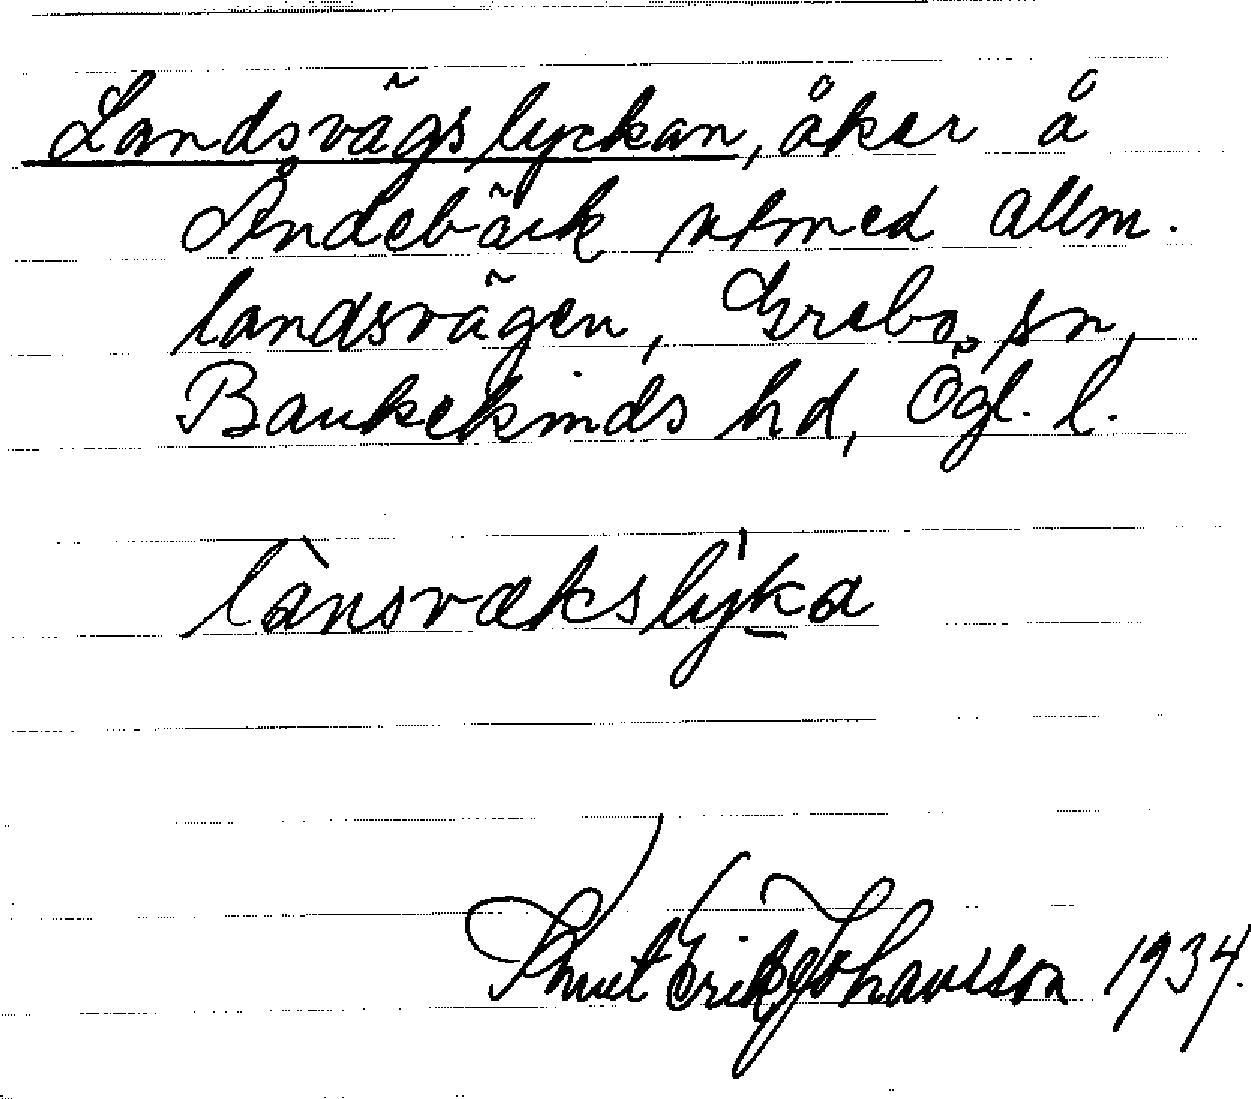 Landsvägslyckan, åker å
Åndebäck utmed allm.
landsvägen, Grebo sn,
Bankekinds hd, Ögl. l.
lànsvækslýka
Knut Erik Johansson 1934.